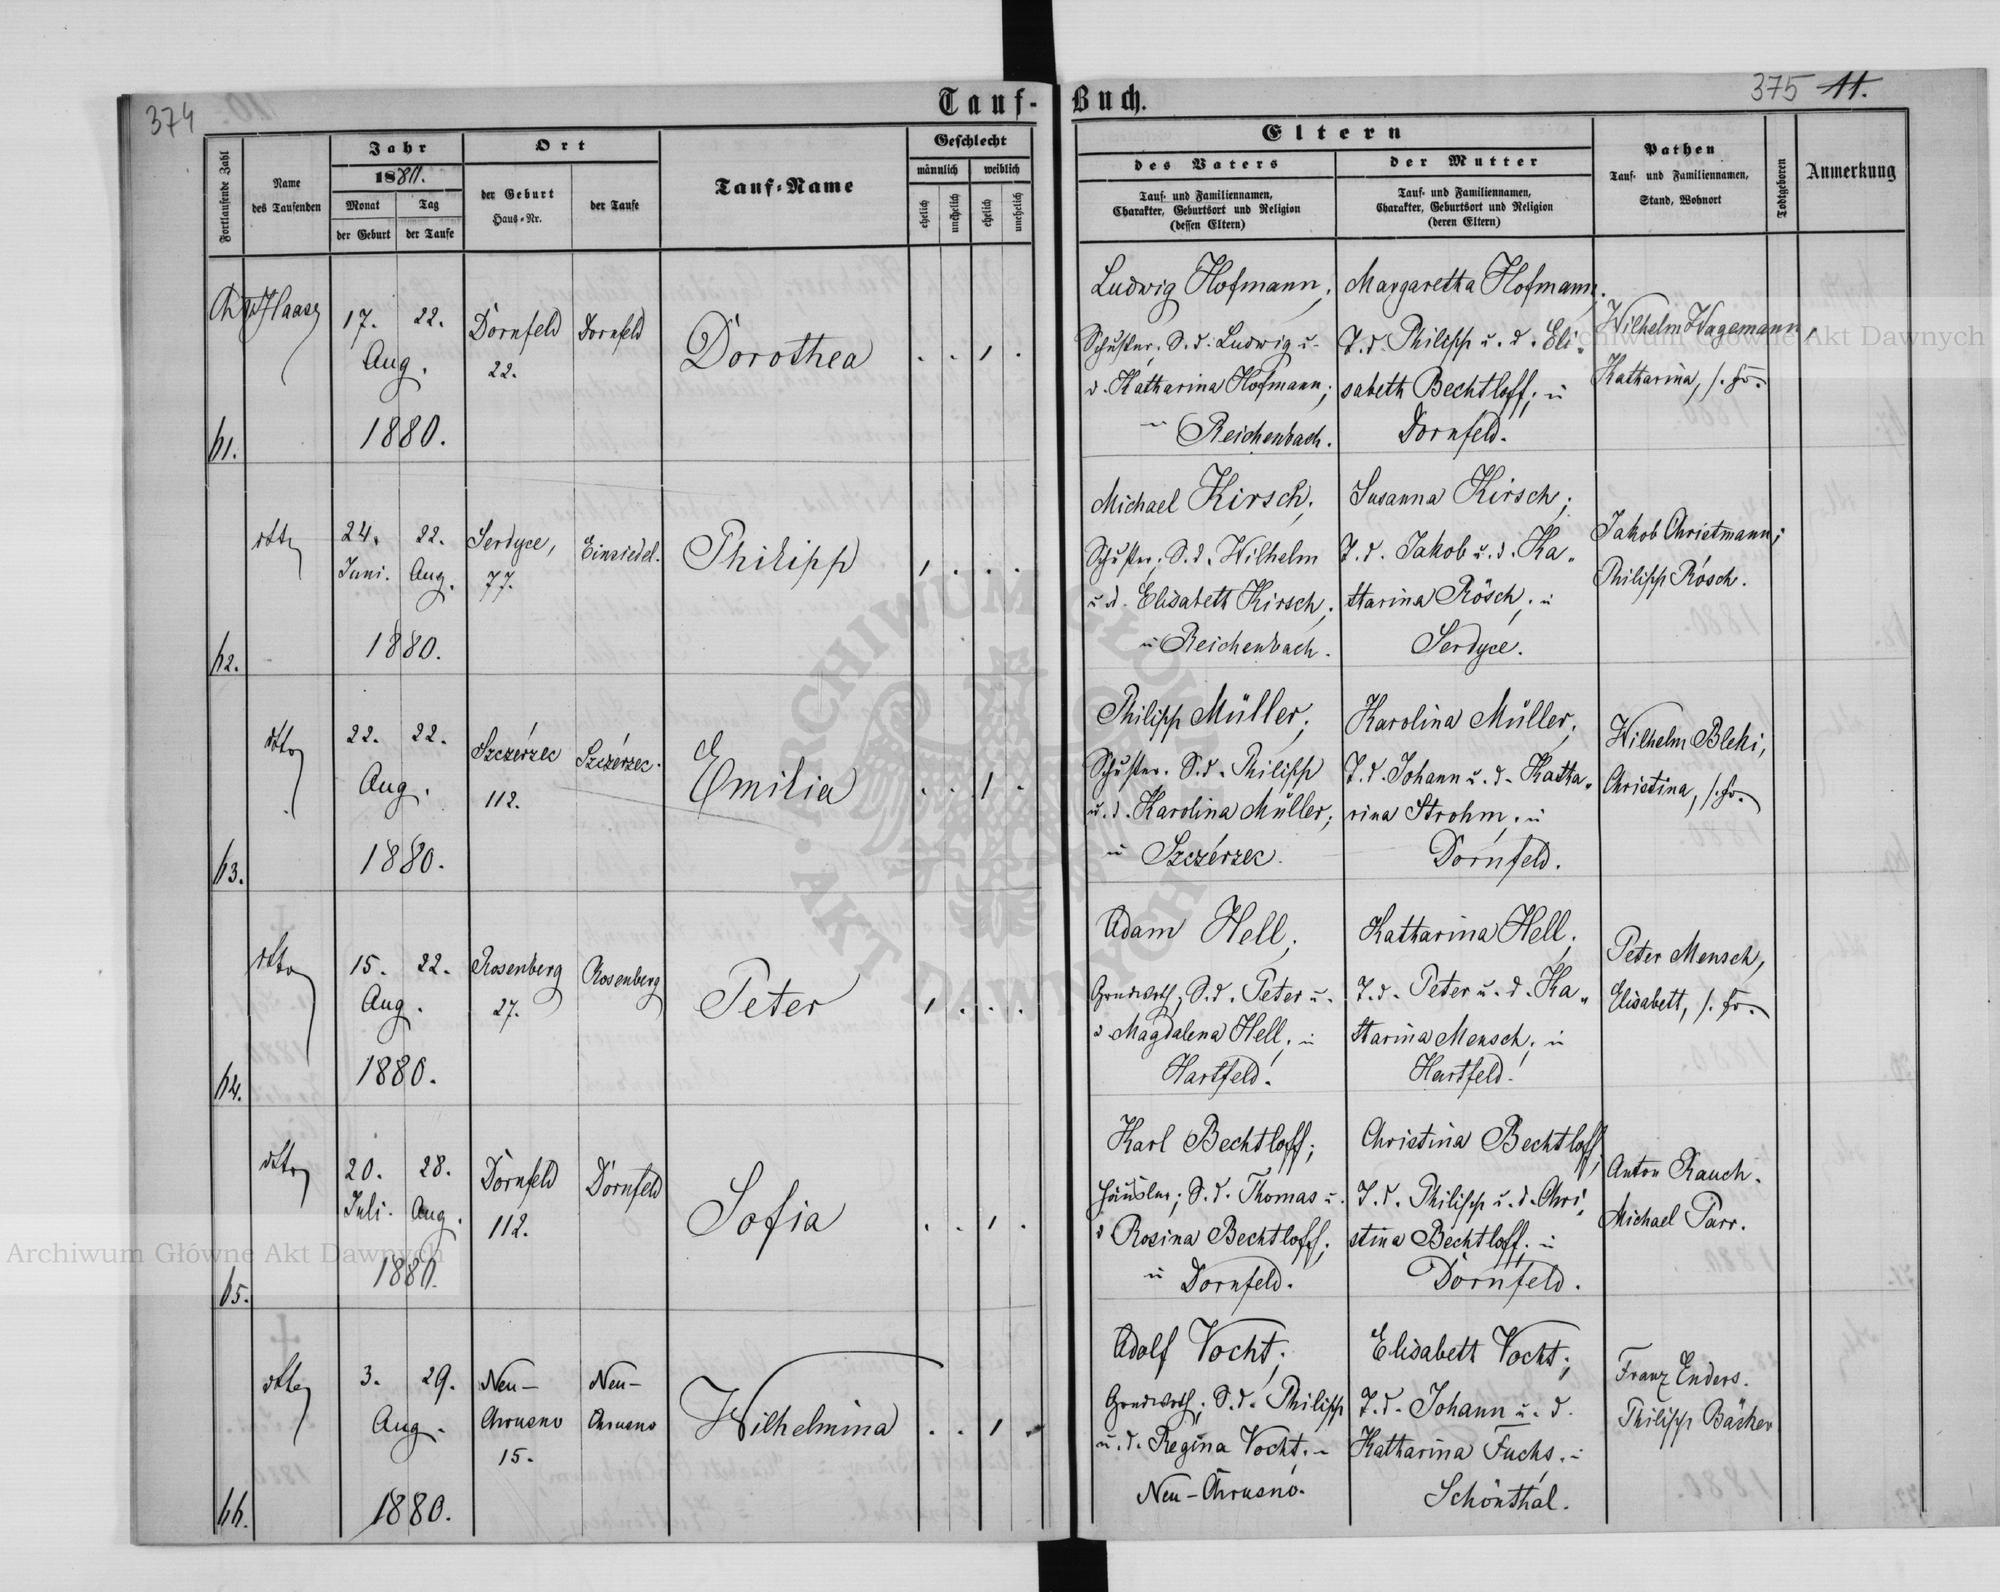 374
375 11.
Tauf-Buch.
Fortlaufende Zahl
Name des Taufenden
Jahr
1880.
Monat
Tag
der Geburt
der Taufe
Ort
der Geburt
Haus-Nr.
der Taufe
Tauf-Name
Geschlecht
männlich
weiblich
ehelich
unehelich
ehelich
unehelich
Eltern
des Vaters
Tauf- und Familiennamen,
Charakter, Geburtsort und Religion
(dessen Eltern)
der Mutter
Tauf- und Familiennamen,
Charakter, Geburtsort und Religion
(deren Eltern)
Pathen
Tauf- und Familiennamen,
Stand, Wohnort
Todtgeboren
Anmerkung
Haase
17. 22.
Aug.
1880.
61.
Dornfeld
22.
Dornfeld
Dorothea
Ludwig Hofmann;
Schuster. S. d. Ludwig u.
d. Katharina Hofmann;
Reichenbach.
Margaretha Hofmann;
T. d. Philipp u. d. Eli-
sabeth Bechtloff; u
Dornfeld.
Wilhelm Wagemann,
Katharina,
dtto
24. 22.
Juni. Aug.
1880.
62.
Serdyce,
77.
Einsiedel.
Philipp
Michael Kirsch;
Schuster; S. d. Wilhelm
u. d. Elisabeth Kirsch;
u Reichenbach.
Susanna Kirsch;
T. d. Jakob u. d. Ka-
tharina Rösch; u
Serdyce.
Jakob Christmann;
Philipp Rösch.
dtto
22. 22.
Aug.
1880.
63.
Szczérzec
112.
Szczérzec.
Emilia
Philipp Müller;
Schuster. S. d. Philipp
u. d. Karolina Müller;
u Szczérzec.
Karolina Müller;
T. d. Johann u. d. Katha-
rina Strohm; u
Dornfeld.
Wilhelm Bleki,
Christina,
dtto
15. 22.
Aug.
1880.
64.
Rosenberg
27.
Rosenberg
Peter
Adam Hell;
Grundwirth; S. d. Peter u.
d Magdalena Hell; u
Hartfeld.
Katharina Hell;
T. d. Peter u. d. Ka-
tharina Mensch; u
Hartfeld.
Peter Mensch,
Elisabeth,
dtto
20. 28.
Juli. Aug.
1880.
65.
Dornfeld
112.
Dornfeld
Sofia
Karl Bechtloff;
Häusler; S. d. Thomas u.
d Rosina Bechtloff;
u Dornfeld.
Christina Bechtloff;
T. d. Philipp u. d. Chri-
stina Bechtloff; u
Dornfeld.
Anton Rauch.
Michael Parr.
dtto
3. 29.
Aug.
1880.
66.
Neu-
Chrusno
15.
Neu-
Chrusno
Wilhelmina
Adolf Vocht;
Grundwirth; S. d. Philipp
u. d. Regina Vocht;
Neu-Chrusno.
Elisabeth Vocht;
T. d. Johann u. d.
Katharina Fuchs.
Schönthal.
Franz Enders.
Philipp Bäcker
Archiwum Główne Akt Dawnych
Archiwum Główne Akt Dawnych
ARCHIWUM GŁÓWNE AKT DAWNYCH